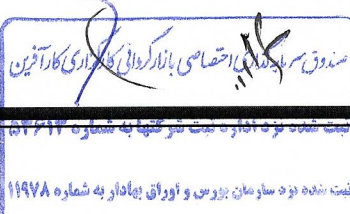 صندوق سرمایه‌گذاری اختصاصی بازارگردانی کارگزاری کارآفرین
ثبت شده نزد اداره ثبت شرکتها به شماره
ثبت شده نزد سازمان بورس و اوراق بهادار به شماره ۱۱۹۷۸